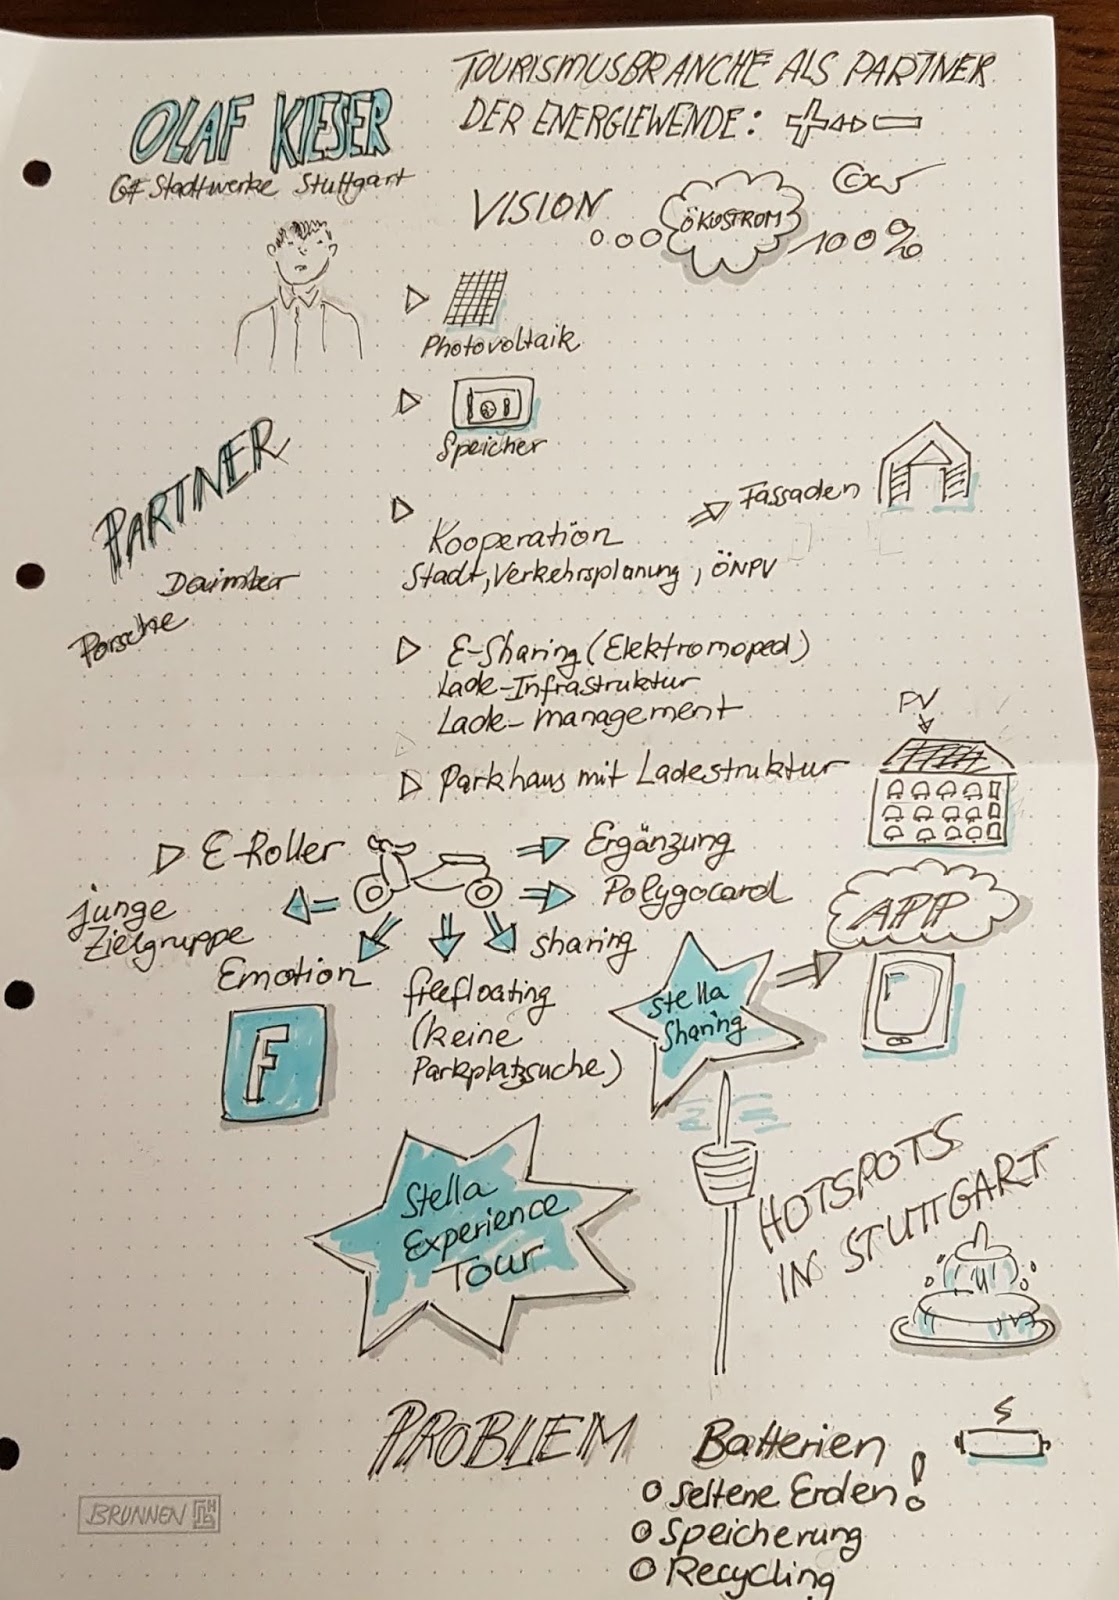 TOURISMUSBRANCHE ALS PARTNER
DER ENERGIEWENDE:
OLAF KIESER
GF Stadtwerke Stuttgart
VISION
ÖKOSTROM
100%
Photovoltaik
Speicher
PARTNER
Daimler
Porsche
Kooperation
Fassaden
Stadt, Verkehrsplanung, ÖNPV
E-Sharing (Elektromoped)
Lade-Infrastruktur
Lade-management
PV
Parkhaus mit Ladestruktur
E-Roller
Ergänzung
Polygocard
junge
Zielgruppe
Emotion
freefloating
(keine
Parkplatzsuche)
sharing
F
Stella
Sharing
APP
F
Stella
Experience
Tour
HOTSPOTS
IN STUTTGART
PROBLEM
Batterien
Seltene Erden!
Speicherung
Recycling
BRUNNEN